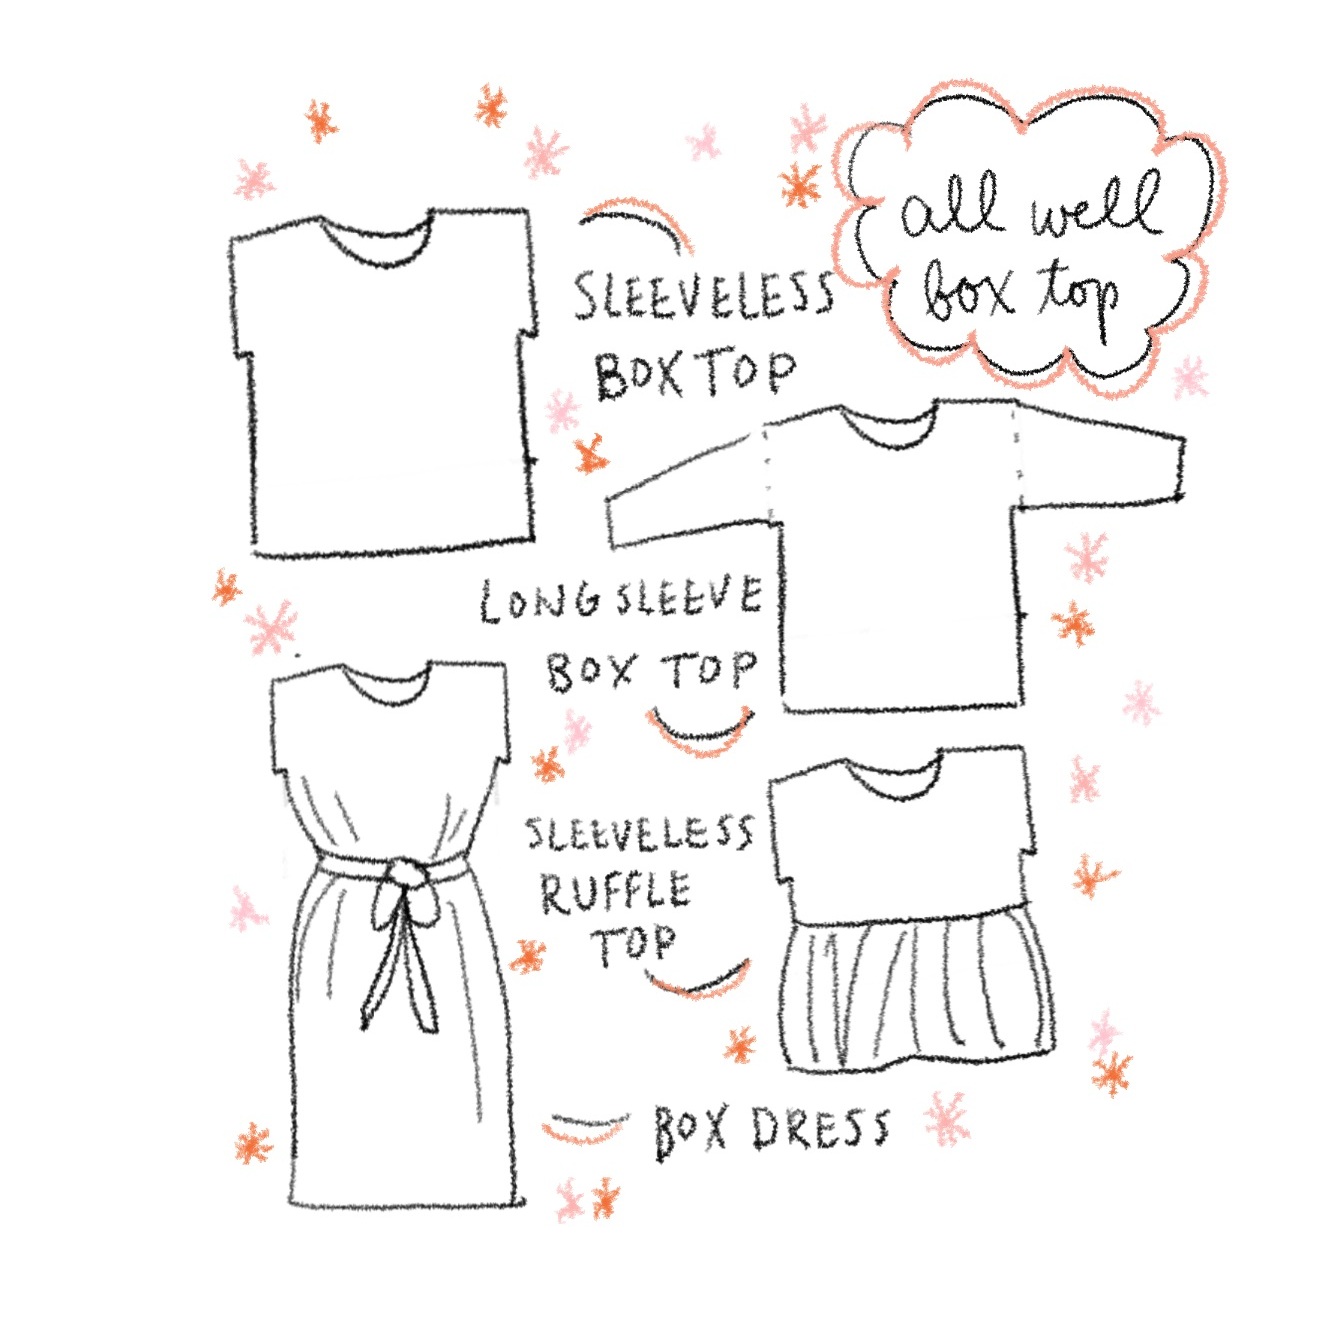 all well
box top
SLEEVELESS
BOX TOP
LONG SLEEVE
BOX TOP
SLEEVELESS
RUFFLE
TOP
BOX DRESS